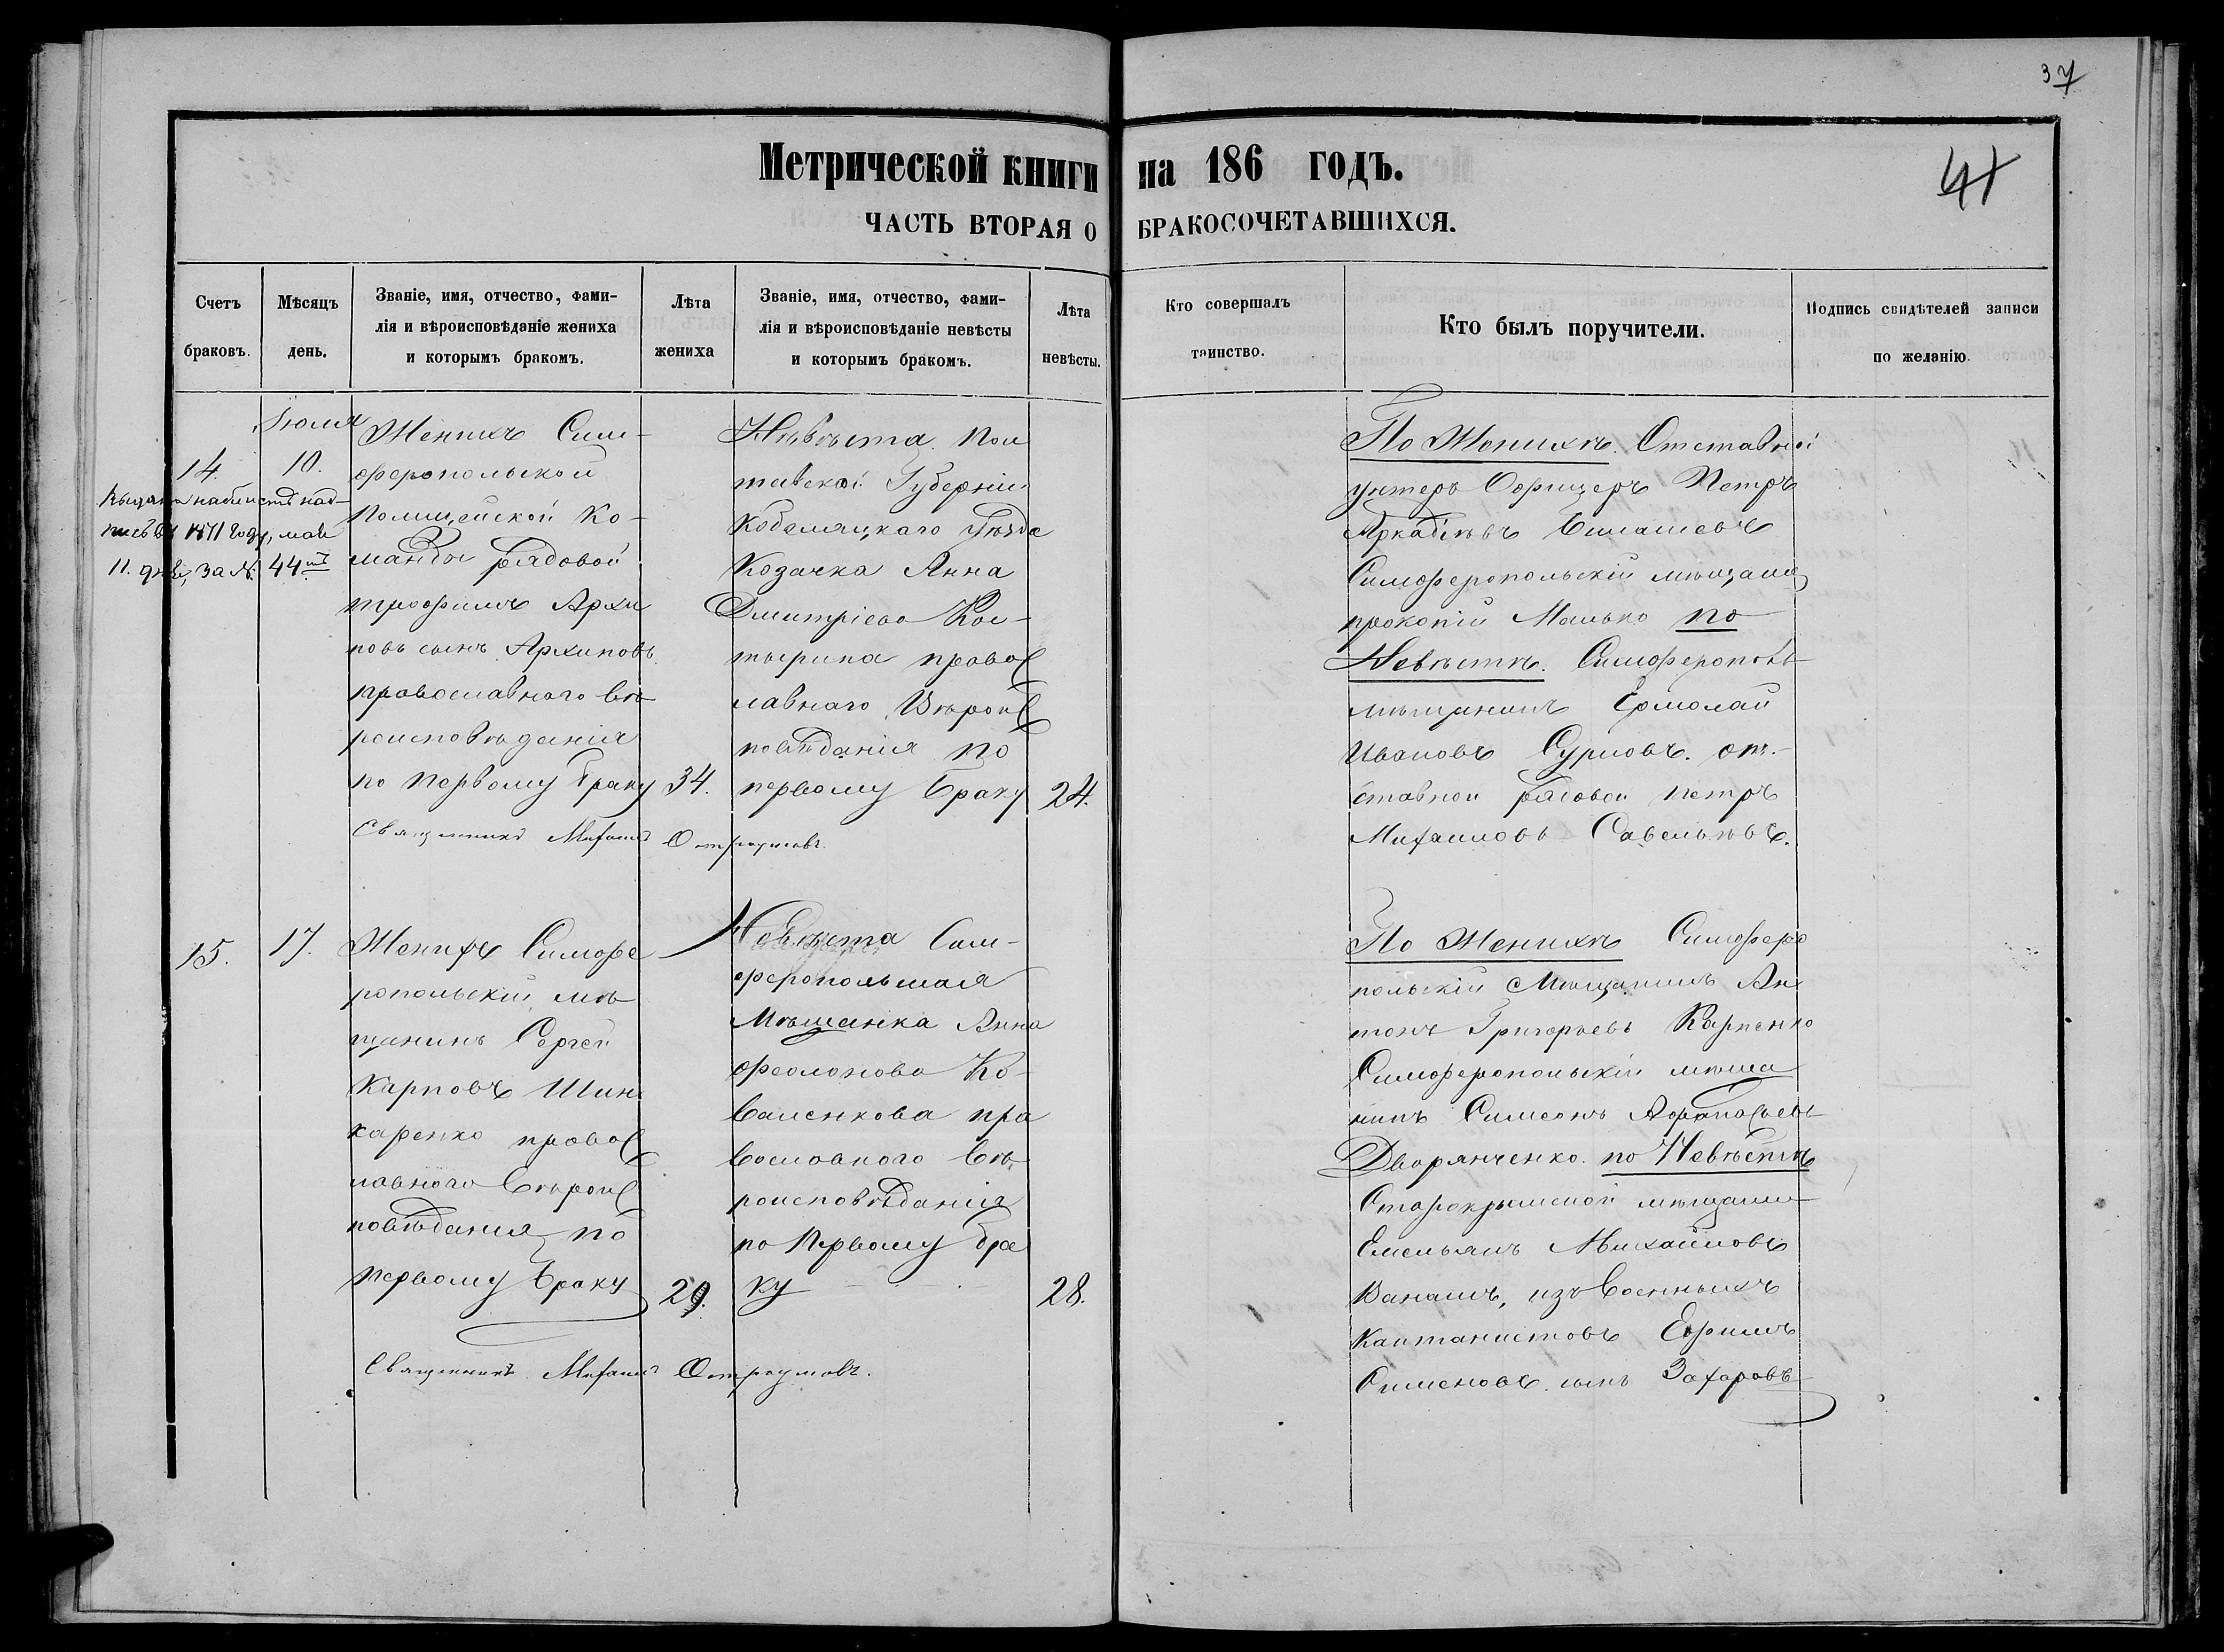 37
41
Метрической книги на 186 годъ.
ЧАСТЬ ВТОРАЯ О БРАКОСОЧЕТАВШИХСЯ.
Счетъ
браковъ.
Мѣсяцъ
день.
Званіе, имя, отчество, фами-
лія и вѣроисповѣданіе жениха
и которымъ бракомъ.
Лѣта
жениха
Званіе, имя, отчество, фами-
лія и вѣроисповѣданіе невѣсты
и которымъ бракомъ.
Лѣта
невѣсты.
Кто совершалъ
таинство.
Кто былъ поручители.
Подпись свидѣтелей записи
по желанію.
14.
Іюля
10.
1871 году, мая
11. дня, за № 44
Женихъ Сим-
феропольской
Полицейской Ко-
манды рядовой
трофимъ Архи
повъ сынъ Архиповъ
православного вѣ
роисповѣданія
по первому браку
34.
Невѣста Пол
тавской Губерніи
Кобеляцкаго Уѣзда
Козачка Анна
Дмитріева Кос-
тырина правос
лавнаго Вѣроис
повѣданія по
первому браку
24.
Священникъ Михаилъ
По Женихѣ. Отставной
унтеръ Офицеръ Петръ
Аркадіевъ
Симферопольскій мещанин
прокопій Малько по
Невѣстѣ. Симферопол
мѣщанинъ Ермолай
Ивановъ Суриовъ. от-
ставной рядовой петръ
Михаиловъ Савельевъ.
15.
17.
Женихъ Симфе
ропольскій мѣ
щанинъ Сергей
Карповъ Шин
каренко правос
лавного вѣроис
повѣданія по
первому браку
29.
Невѣста Сим-
феропольшая
Мѣщанка Анна
феолонова Ко-
валенкова пра
вославного вѣ
роисповѣданія
по первому бра
ку
28.
Священникъ Михаилъ
По Женихѣ Симферо
польскій Мѣщанинъ Ан
тонъ Григорьевъ Карпенко
Симферопольскій мѣща
нинъ Симеонъ Афонасьевъ
Дворянченко. по Невѣстѣ
Старокрымской мѣщанин
Емельянъ Михайловъ
Ванашъ, изъ военныхъ
Кантанистовъ Ефимъ
Сименовъ сынъ Захаровъ